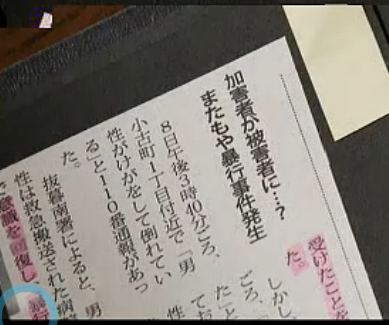 加害者が被害者に…?
またもや暴行事件発生
8日午後3時40分ごろ、
小古町1丁目付近で「男
性がけがをして倒れてい
る」と110番通報があっ
た。
抜春南署によると、男
性は救急搬送された病
意識を回復し
暴行
受けたことを
た。
しかし
ごろ、
た」と
てお
性